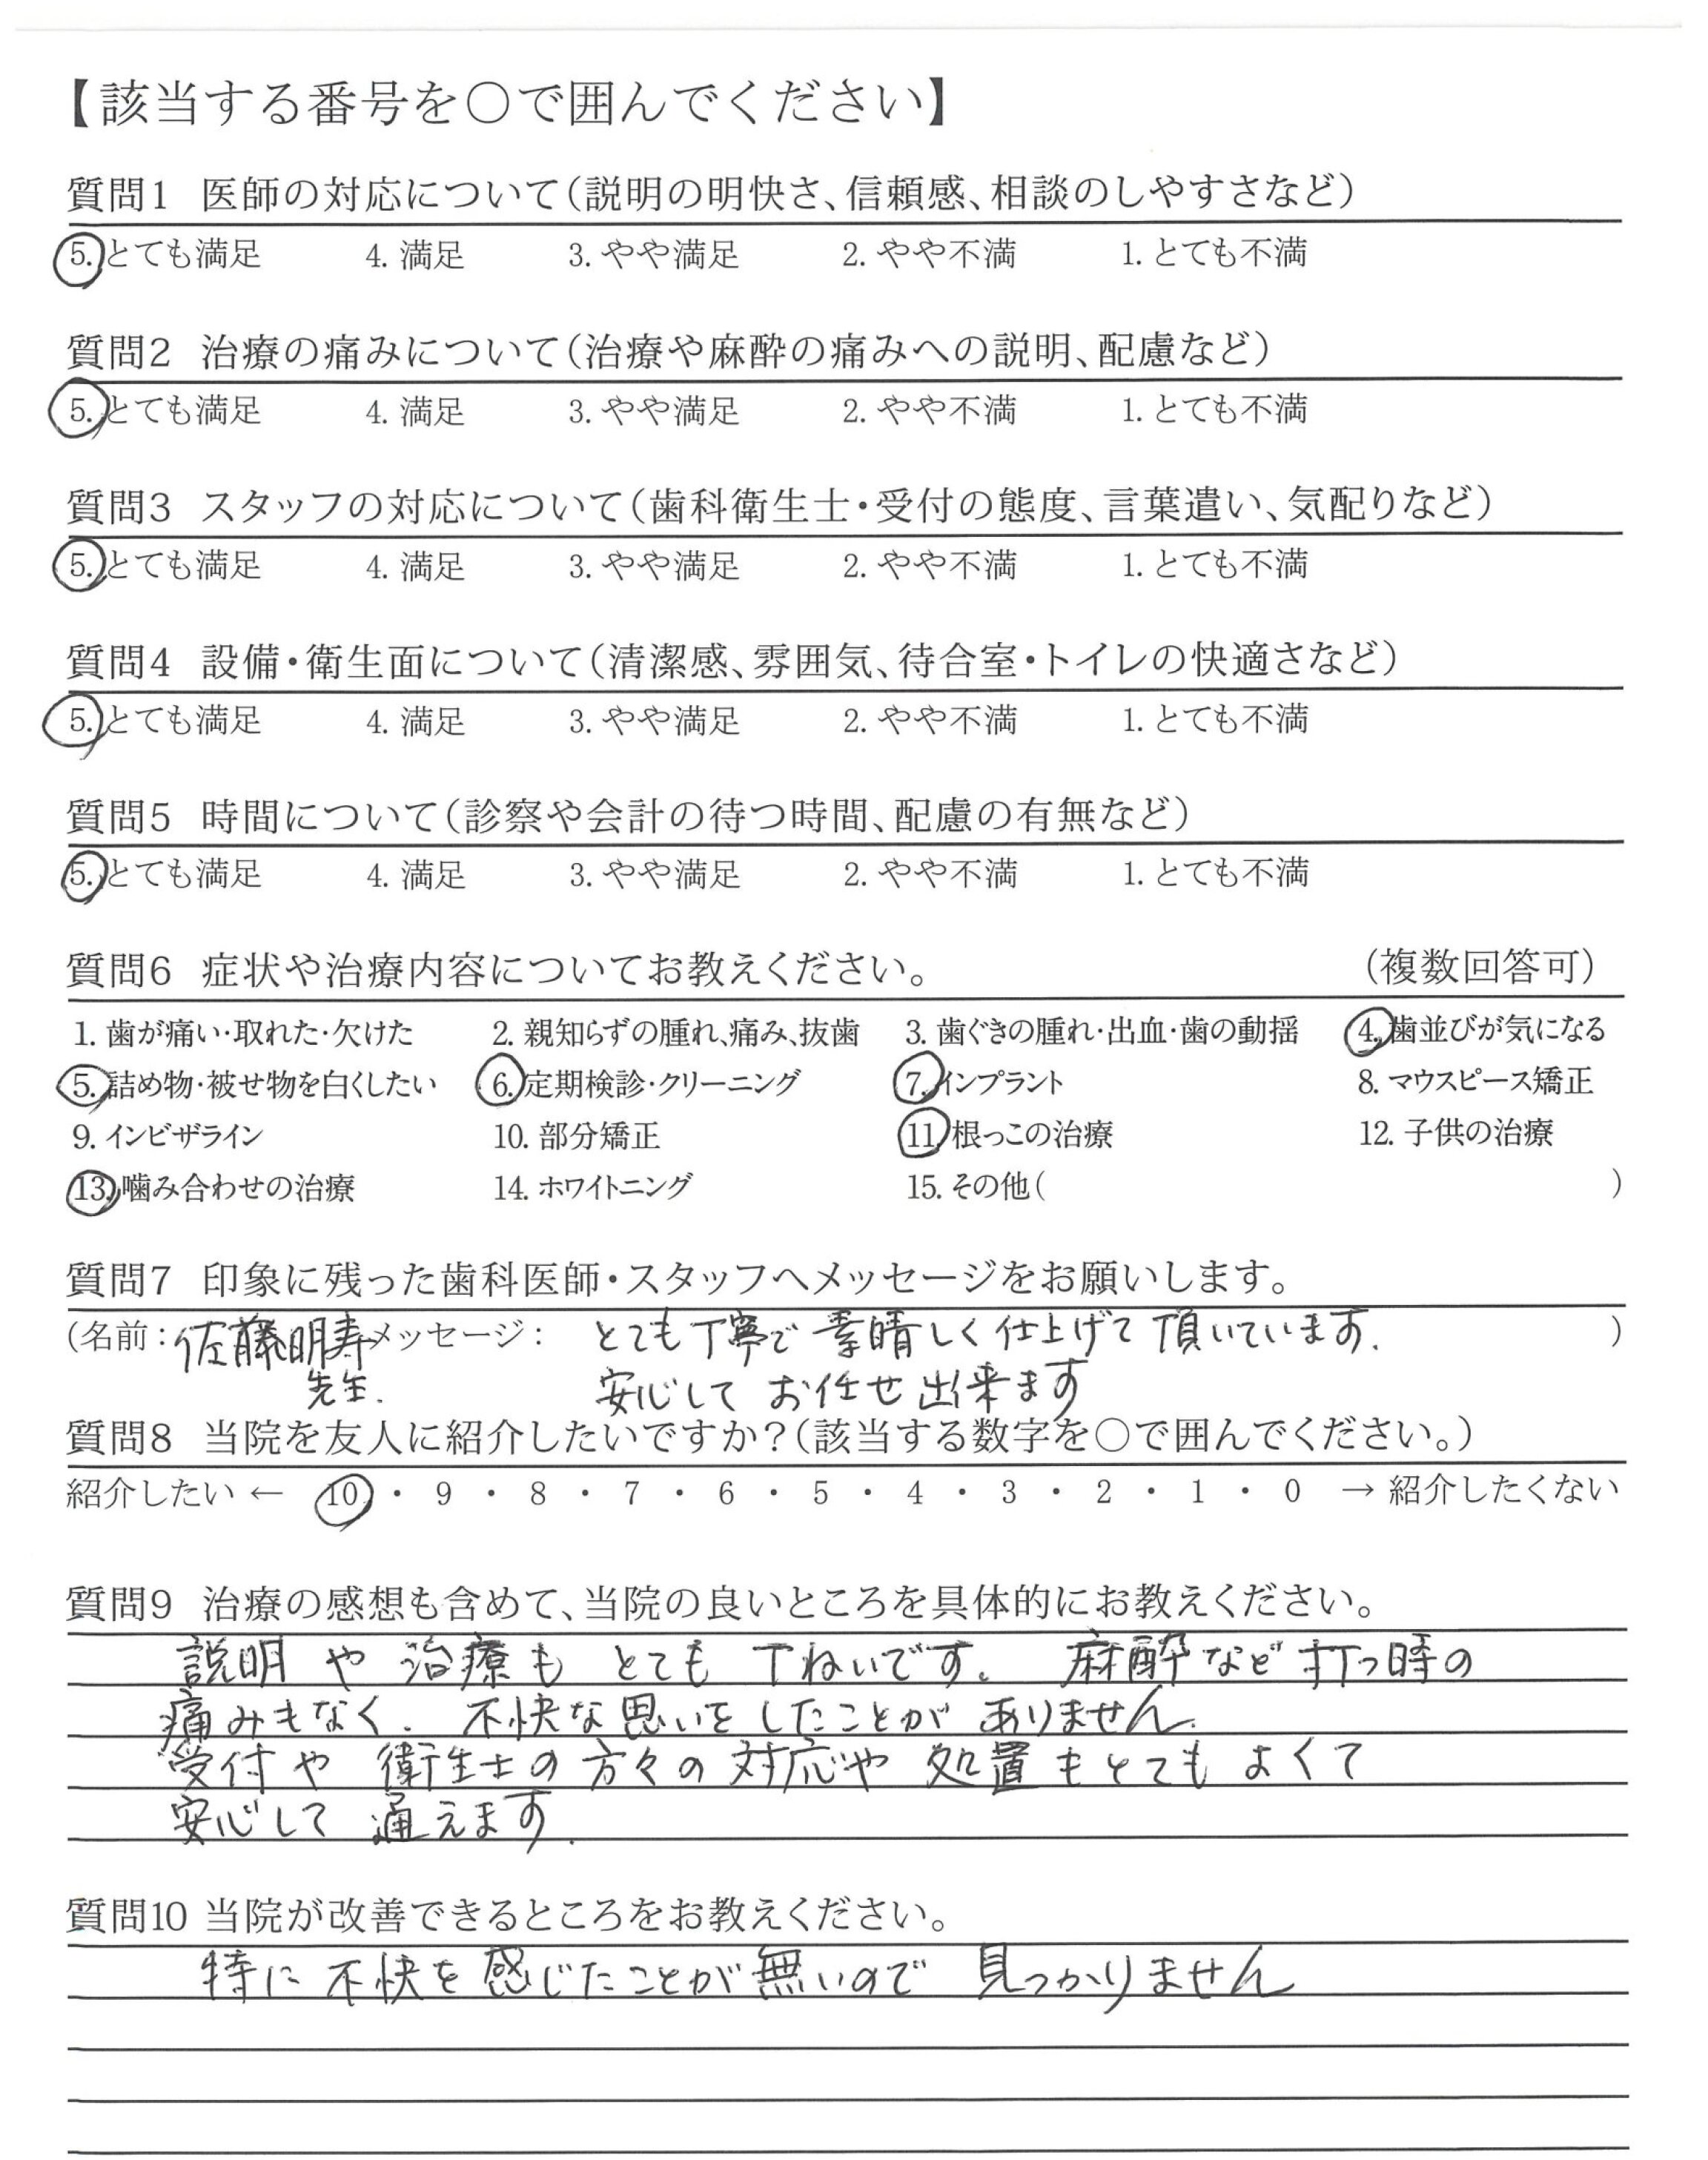 【該当する番号を○で囲んでください】
質問1 医師の対応について（説明の明快さ、信頼感、相談のしやすさなど）
5. とても満足 4. 満足 3. やや満足 2. やや不満 1. とても不満
質問2 治療の痛みについて（治療や麻酔の痛みへの説明、配慮など）
5. とても満足 4. 満足 3. やや満足 2. やや不満 1. とても不満
質問3 スタッフの対応について（歯科衛生士・受付の態度、言葉遣い、気配りなど）
5. とても満足 4. 満足 3. やや満足 2. やや不満 1. とても不満
質問4 設備・衛生面について（清潔感、雰囲気、待合室・トイレの快適さなど）
5. とても満足 4. 満足 3. やや満足 2. やや不満 1. とても不満
質問5 時間について（診察や会計の待つ時間、配慮の有無など）
5. とても満足 4. 満足 3. やや満足 2. やや不満 1. とても不満
質問6 症状や治療内容についてお教えください。 （複数回答可）
1. 歯が痛い・取れた・欠けた 2. 親知らずの腫れ、痛み、抜歯 3. 歯ぐきの腫れ・出血・歯の動揺 4. 歯並びが気になる
5. 詰め物・被せ物を白くしたい 6. 定期検診・クリーニング 7. インプラント 8. マウスピース矯正
9. インビザライン 10. 部分矯正 11. 根っこの治療 12. 子供の治療
13. 噛み合わせの治療 14. ホワイトニング 15. その他（ ）
質問7 印象に残った歯科医師・スタッフへメッセージをお願いします。
（名前：佐藤明寿 メッセージ： とても丁寧で 素晴しく 仕上げて 頂いています. ）
先生. 安心して お任せ 出来ます
質問8 当院を友人に紹介したいですか？（該当する数字を○で囲んでください。）
紹介したい ← 10 ・ 9 ・ 8 ・ 7 ・ 6 ・ 5 ・ 4 ・ 3 ・ 2 ・ 1 ・ 0 → 紹介したくない
質問9 治療の感想も含めて、当院の良いところを具体的にお教えください。
説明 や 治療も とても 丁ねいです。 麻酔など 打つ時の
痛みもなく. 不快な思いをしたことが ありません.
受付や 衛生士の 方々の 対応や 処置もとても よくて
安心して 通えます.
質問10 当院が改善できるところをお教えください。
特に 不快を 感じたことが 無いので 見つかりません